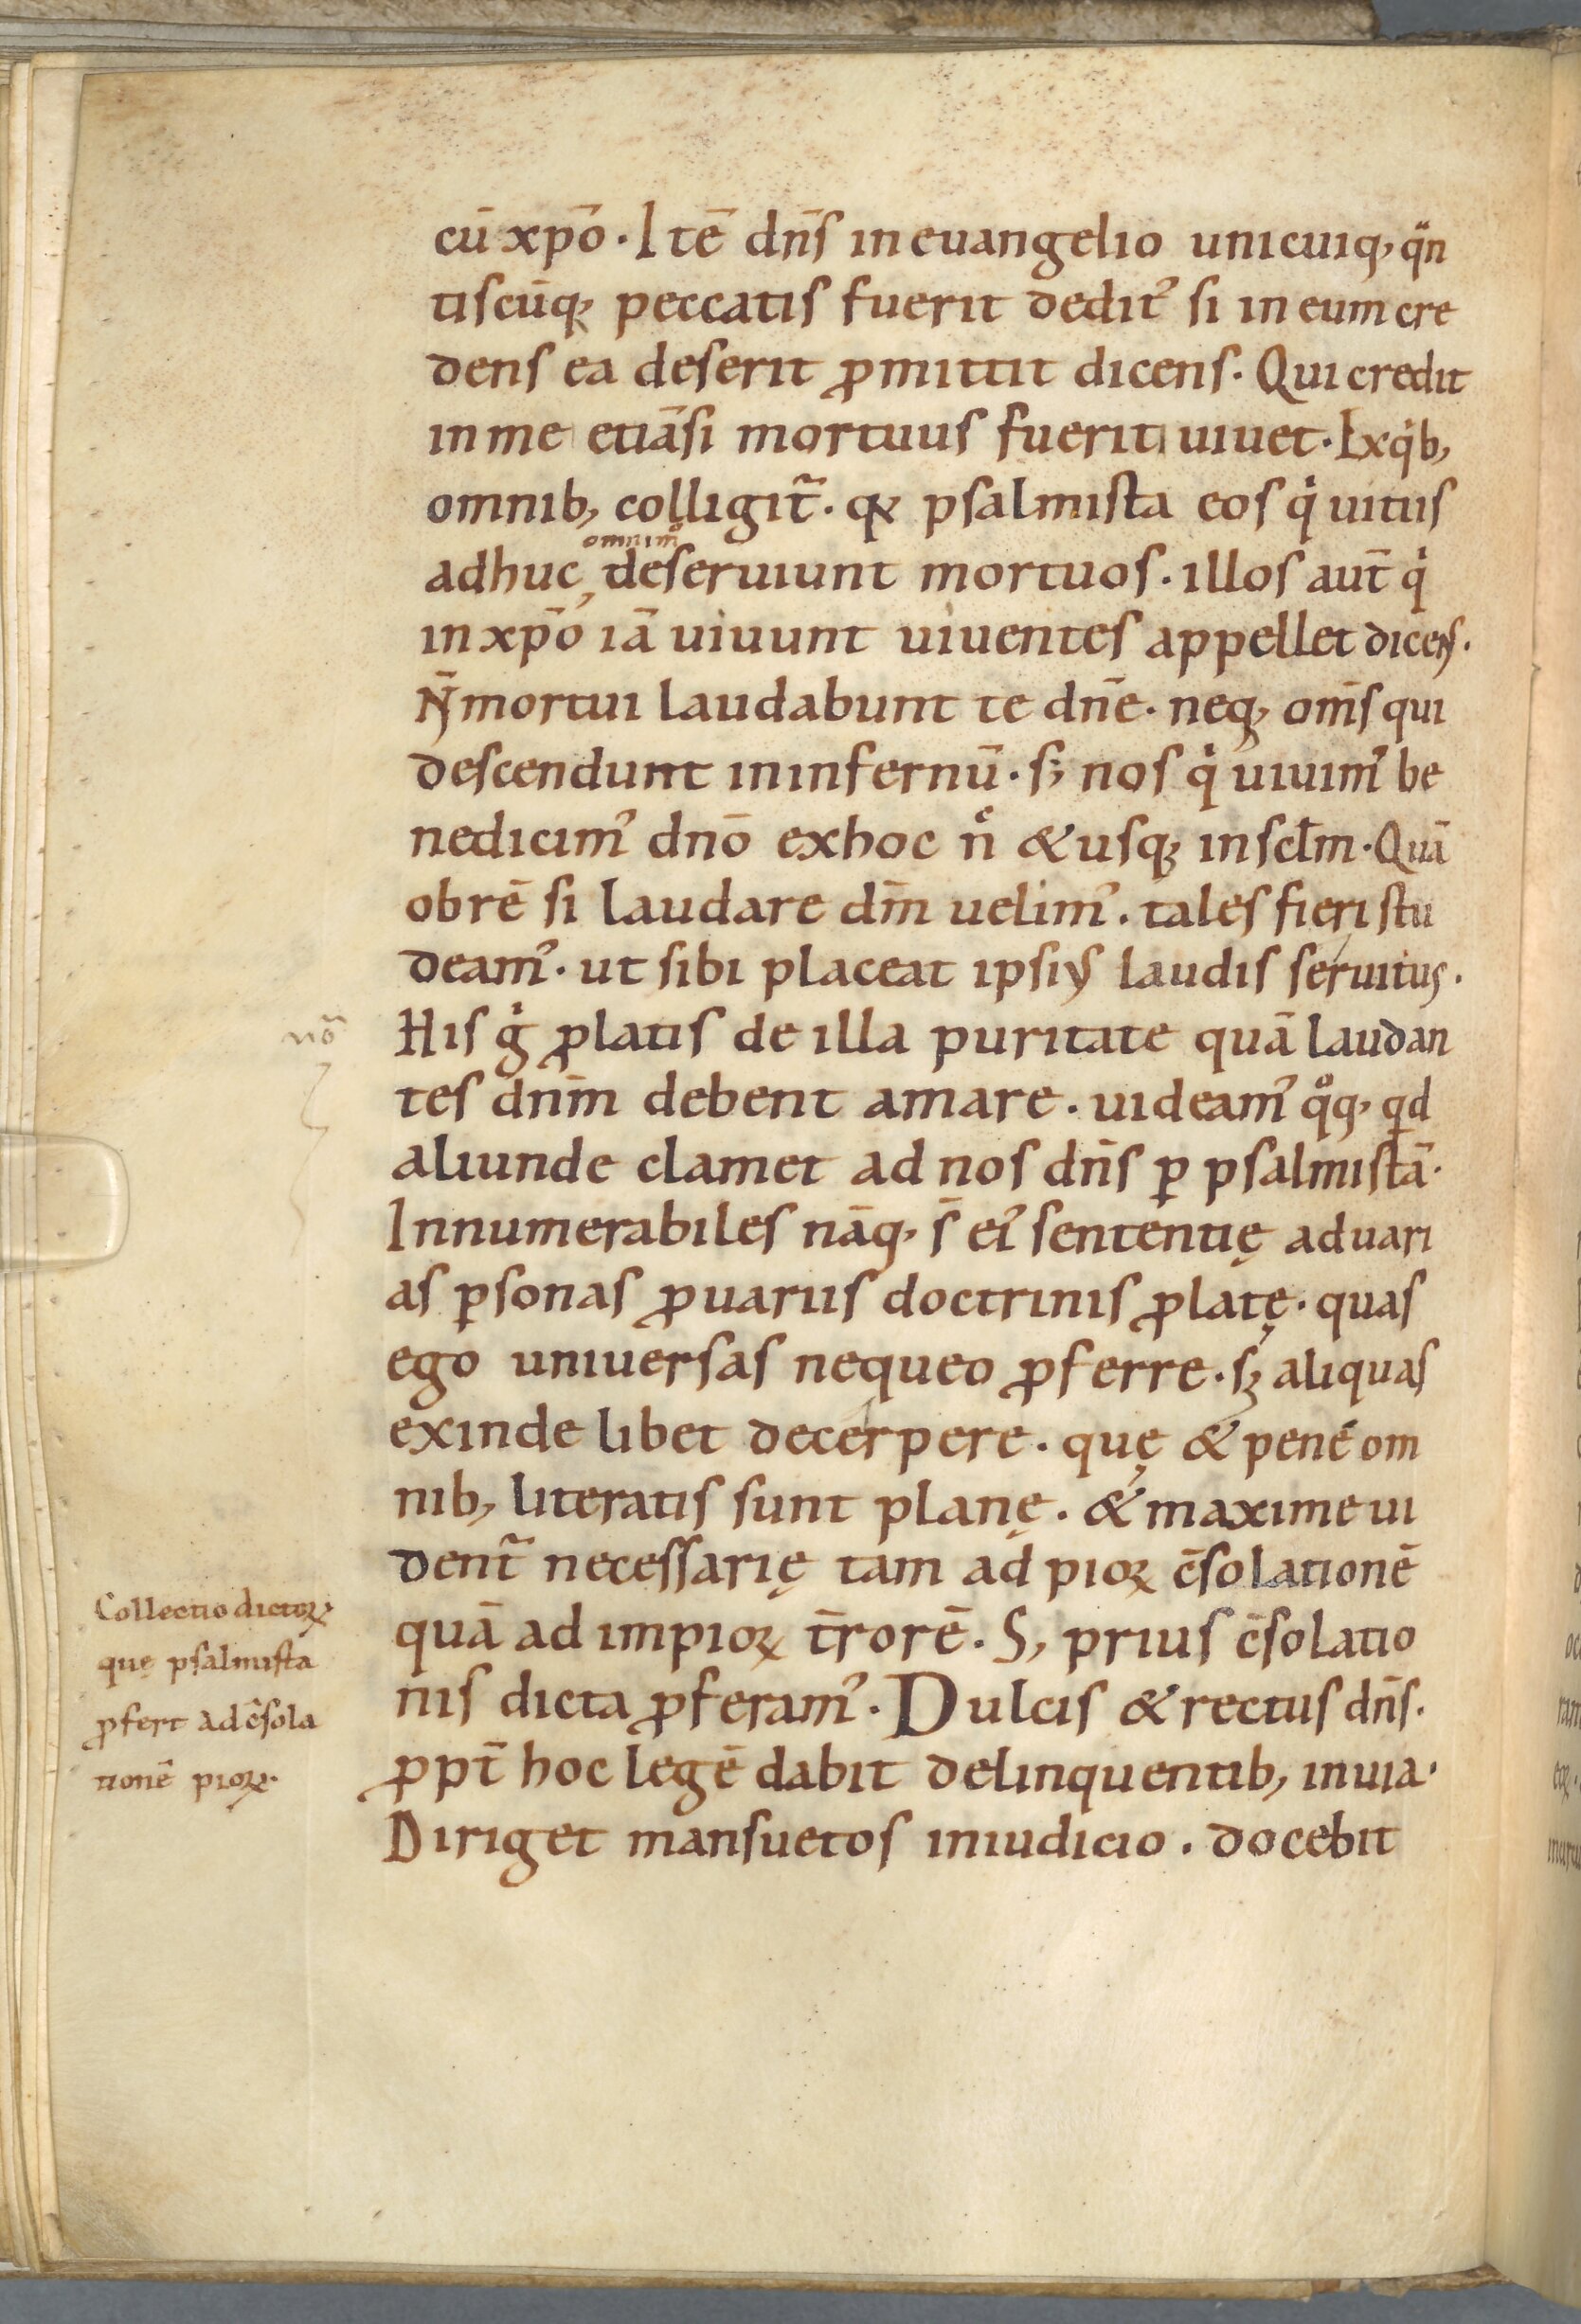 cū xp̄o · Itē dn̄s in euangelio unicuiq, qͣn
tiscūq; peccatis fuerit deditꝰ si in eum cre
dens ea deserit ꝓmittit dicens · Qui credit
in me etiāsi mortuus fuerit uiuet · Ex qͥb,
omnib, colligit᷑ · qꝫ psalmista eos qͥ uitiis
omnimͦ
adhuc, deseruiunt mortuos · illos aut̄ qͥ
in xp̄o iā uiuunt uiuentes appellet dicens ·
N̄ mortui laudabunt te dn̄e · neq, om̄s qui
descendunt in infernū · sꝫ nos qͥ uiuimꝰ be
nedicimꝰ dn̄o ex hoc nͨ & usq; in sclm̄ · Quā
obrē si laudare dm̄ uelimꝰ · tales fieri stu
deamꝰ · ut sibi placeat ipsius laudis seruitus ·
nō
His gͥ ꝓlatis de illa puritate quā laudan
tes dnm̄ debent amare · uideamꝰ qͦq, qͥd
aliunde clamet ad nos dn̄s ꝑ psalmistā ·
Innumerabiles nāq, s̄ eiꝰ sententię ad uari
as ꝑsonas ꝓ uariis doctrinis ꝓlatę · quas
ego uniuersas nequeo ꝓferre · sꝫ aliquas
exinde libet decerpere · quę & pene om
nib, literatis sunt planę · & maxime ui
dent᷑ necessarię tam ad pioꝝ c̄solationē
quā ad impioꝝ t̄rorē · S, prius c̄solatio
nis dicta ꝓferamꝰ · Dulcis & rectus dn̄s ·
ꝓpt̄ hoc legē dabit delinquentib, in uia ·
Diriget mansuetos in iudicio · docebit
Collectio dictoꝝ
quę psalmista
ꝓfert ad c̄sola
tionē pioꝝ ·